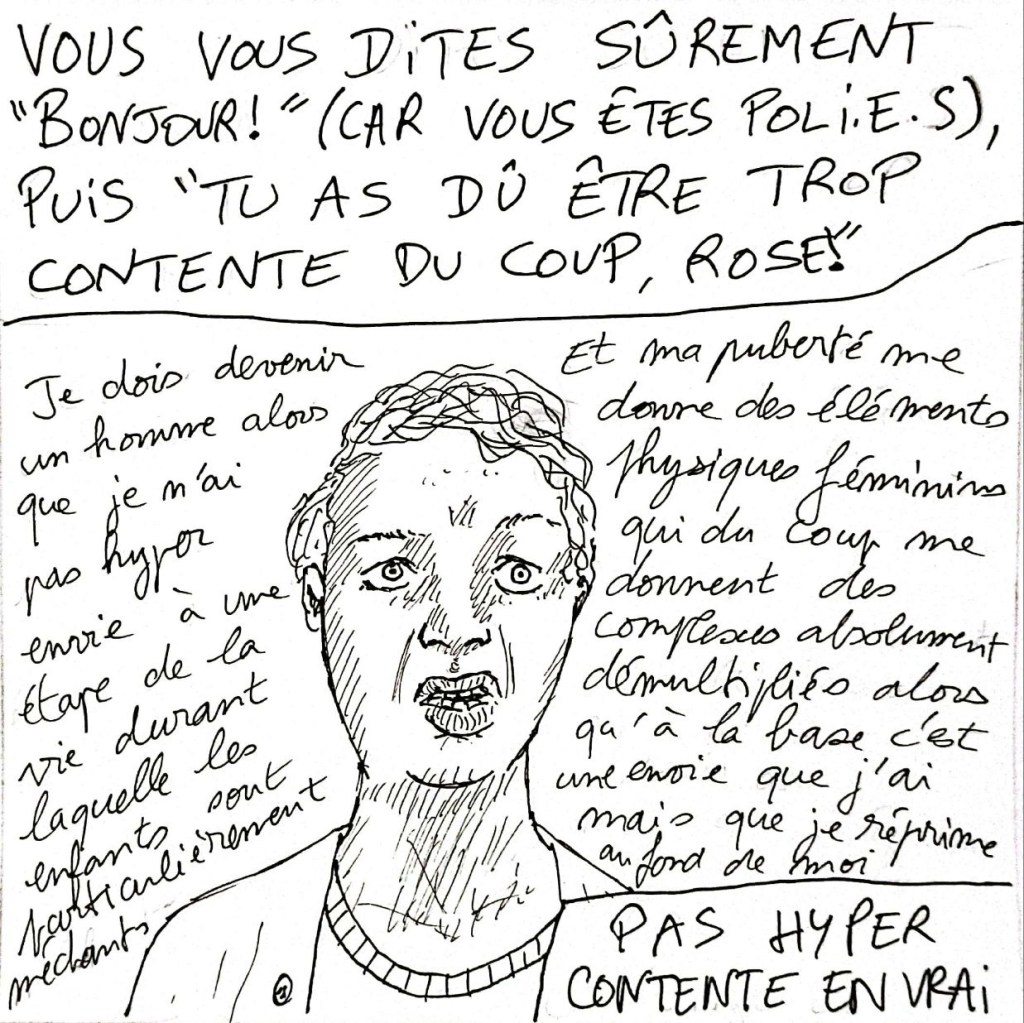 VOUS VOUS DÎTES SÛREMENT
"BONJOUR!" (CAR VOUS ÊTES POLI.E.S),
PUIS "TU AS DÛ ÊTRE TROP
CONTENTE DU COUP, ROSE!"
Je dois devenir
un homme alors
que je n'ai
pas hyper
envie à une
étape de la
vie durant
laquelle les
enfants sont
particulièrement
méchants
Et ma puberté me
donne des éléments
physiques féminins
qui du coup me
donnent des
complexes absolument
démultipliés alors
qu'à la base c'est
une envie que j'ai
mais que je réprime
au fond de moi
PAS HYPER
CONTENTE EN VRAI